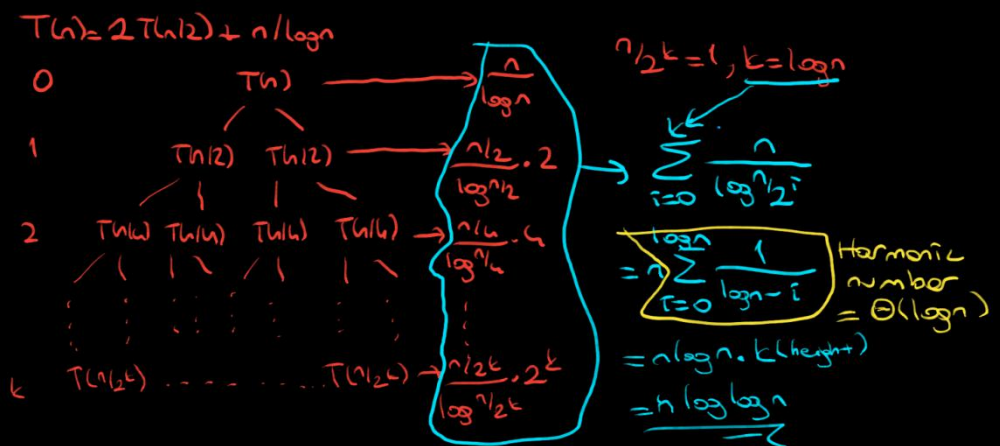 T(n)=2T(n/2)+ n/logn
0 T(n) n/logn
1 T(n/2) T(n/2) (n/2)/(log n/2) · 2
2 T(n/4) T(n/4) T(n/4) T(n/4) (n/4)/(log n/4) · 4
k T(n/2^k) ............ T(n/2^k) (n/2^k)/(log n/2^k) · 2^k
n/2^k = 1, k=logn
k Σ i=0 n/(log n/2^i)
= n logn Σ i=0 1/(logn - i)
Harmonic
number
= Θ(logn)
= nlogn · k(height)
= n log logn